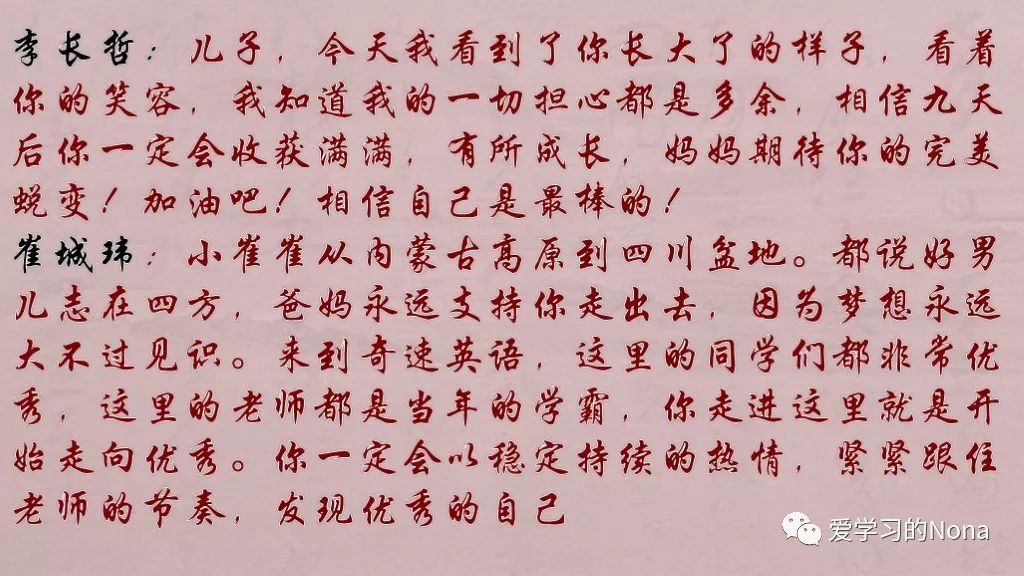 李长哲：儿子，今天我看到了你长大了的样子，看着
你的笑容，我知道我的一切担心都是多余，相信九天
后你一定会收获满满，有所成长，妈妈期待你的完美
蜕变！加油吧！相信自己是最棒的！
崔城玮：小崔崔从内蒙古高原到四川盆地。都说好男
儿志在四方，爸妈永远支持你走出去，因为梦想永远
大不过见识。来到奇速英语，这里的同学们都非常优
秀，这里的老师都是当年的学霸，你走进这里就是开
始走向优秀。你一定会以稳定持续的热情，紧紧跟住
老师的节奏，发现优秀的自己
爱学习的Nona